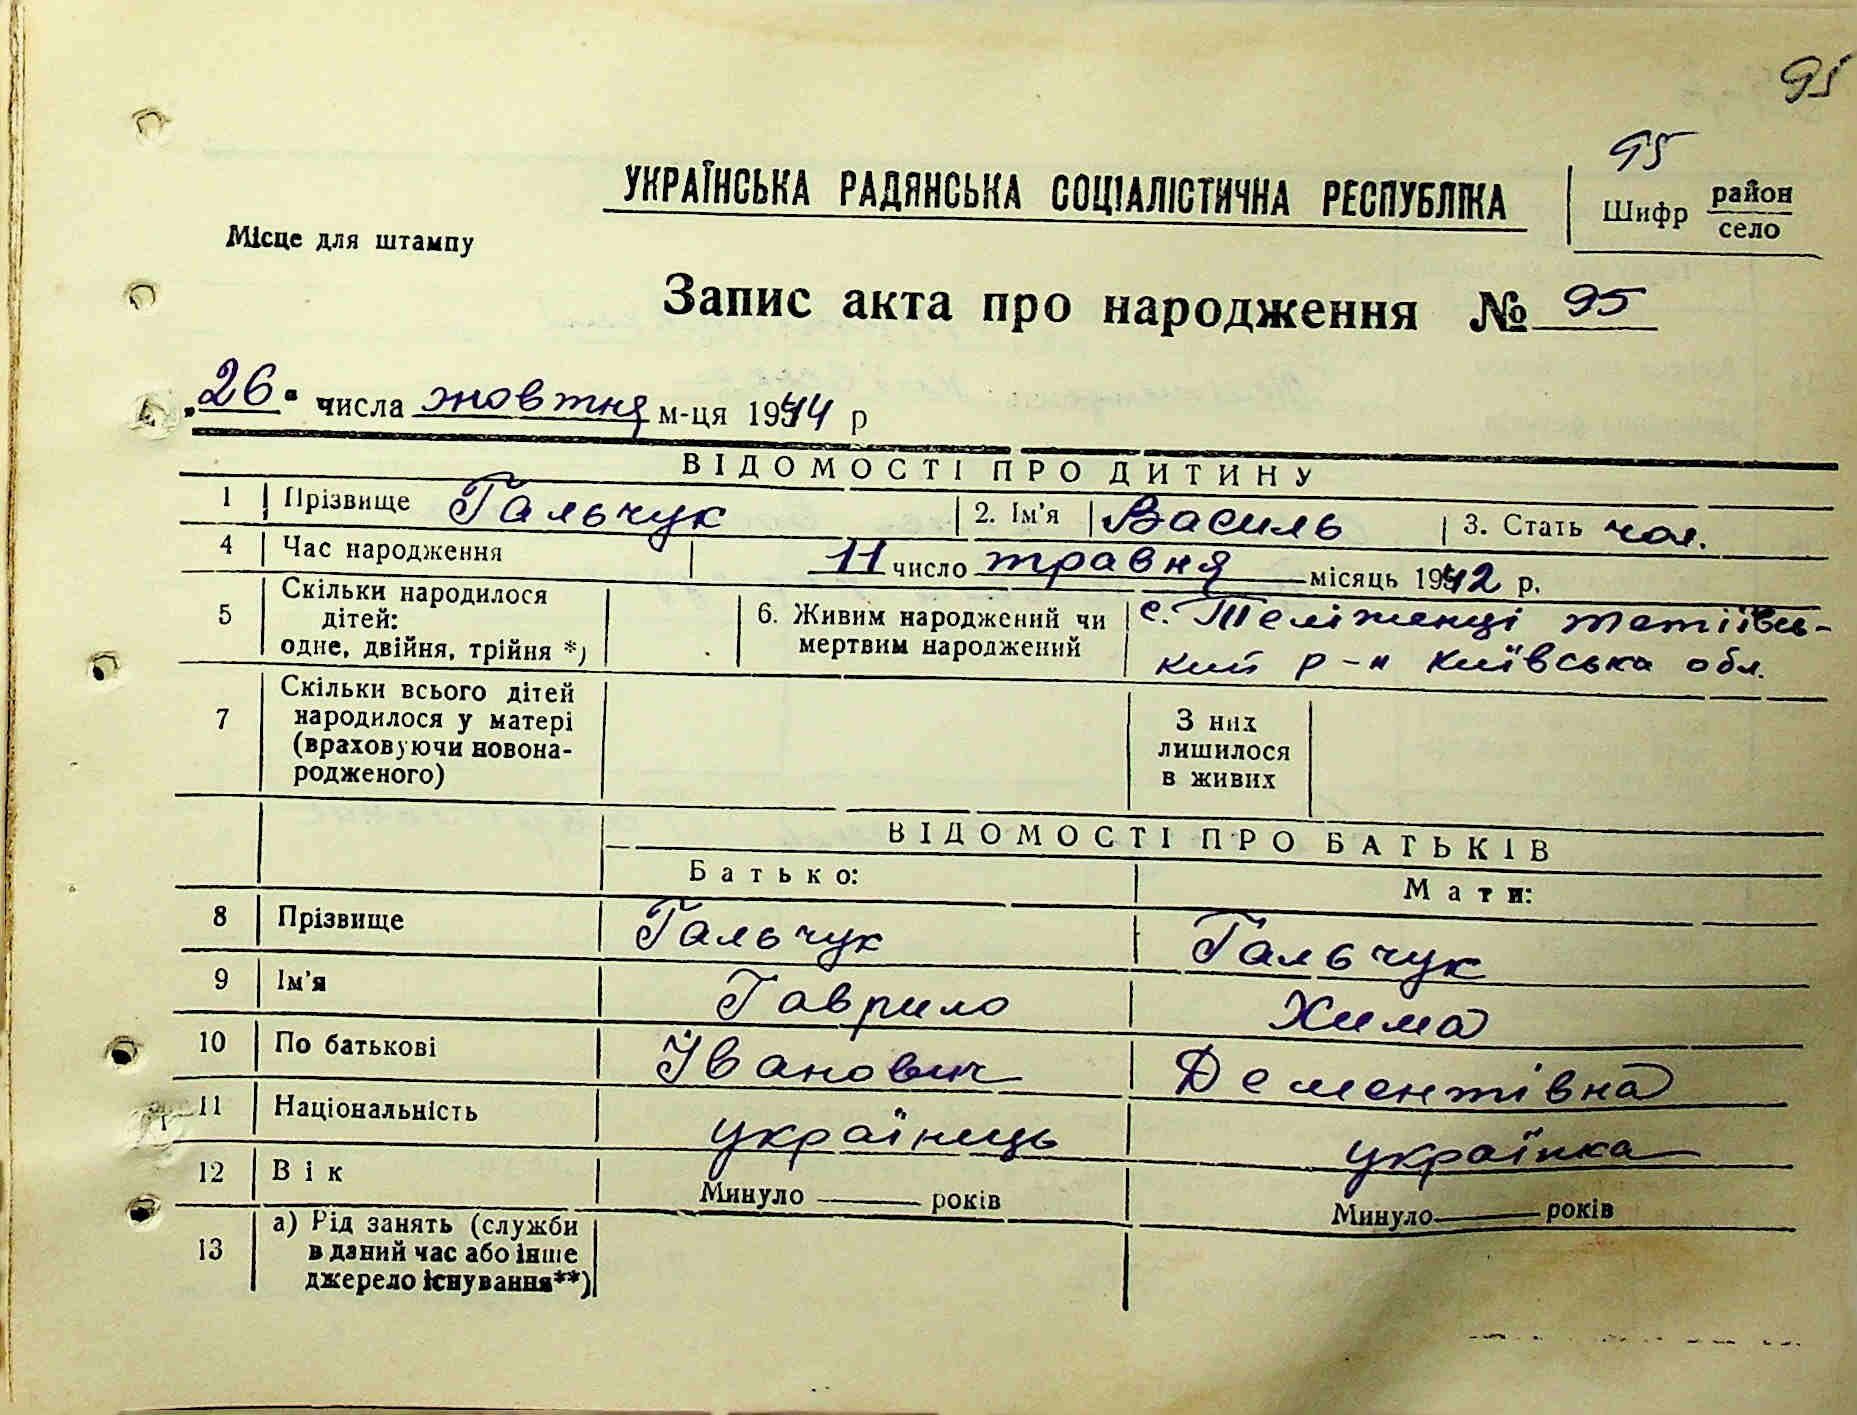 95
95
УКРАЇНСЬКА РАДЯНСЬКА СОЦІАЛІСТИЧНА РЕСПУБЛІКА
Шифр район
село
Місце для штампу
Запис акта про народження № 95
„26" числа жовтня м-ця 1944 р
ВІДОМОСТІ ПРО ДИТИНУ
1 Прізвище Гальчук 2. Ім'я Василь 3. Стать чол.
4 Час народження 11 число травня місяць 1942 р.
5 Скільки народилося
дітей:
одне, двійня, трійня *)
6. Живим народжений чи
мертвим народжений
с. Теліженці тетіївсь-
кий р-н Київська обл.
7 Скільки всього дітей
народилося у матері
(враховуючи новона-
родженого)
З них
лишилося
в живих
ВІДОМОСТІ ПРО БАТЬКІВ
Батько: Мати:
8 Прізвище Гальчук Гальчук
9 Ім'я Гаврило Хима
10 По батькові Іванович Дементівна
11 Національність українець українка
12 Вік Минуло ——— років Минуло ——— років
13 а) Рід занять (служби
в даний час або інше
джерело існування**)